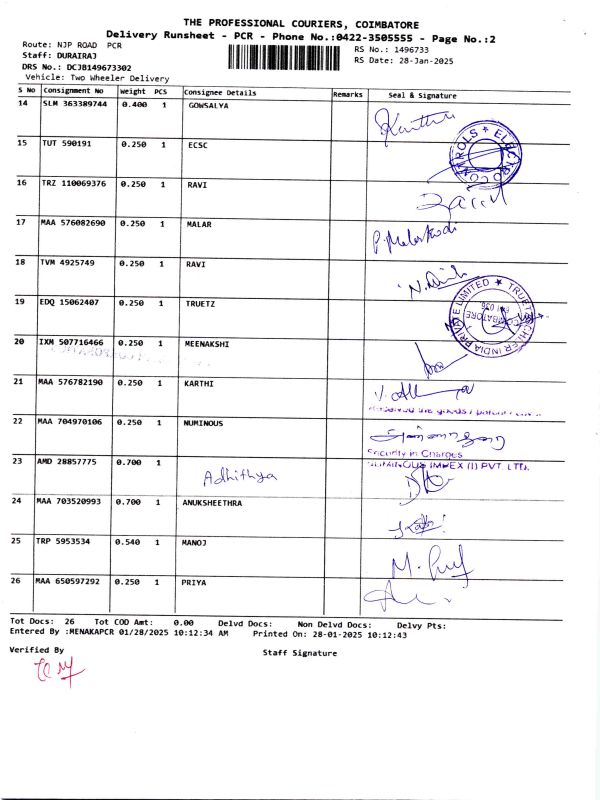 THE PROFESSIONAL COURIERS, COIMBATORE
Delivery Runsheet - PCR - Phone No.:0422-3505555 - Page No.:2
Route: NJP ROAD PCR
RS No.: 1496733
Staff: DURAIRAJ
RS Date: 28-Jan-2025
DRS No.: DCJB149673302
Vehicle: Two Wheeler Delivery
S No Consignment No Weight PCS Consignee Details Remarks Seal & Signature
14 SLM 363389744 0.400 1 GOWSALYA
15 TUT 590191 0.250 1 ECSC
ELECTRO CONTROLS
16 TRZ 110069376 0.250 1 RAVI
17 MAA 576082690 0.250 1 MALAR
P. Malarkodi
18 TVM 4925749 0.250 1 RAVI
19 EDQ 15062407 0.250 1 TRUETZ
INDIA PRIVATE LIMITED
20 IXM 507716466 0.250 1 MEENAKSHI
21 MAA 576782190 0.250 1 KARTHI
Received the goods /
22 MAA 704970106 0.250 1 NUMINOUS
Security in Charges
NUMINOUS IMPEX (I) PVT. LTD.
23 AMD 28857775 0.700 1 Adhithya
24 MAA 703520993 0.700 1 ANUKSHEETHRA
25 TRP 5953534 0.540 1 MANOJ
26 MAA 650597292 0.250 1 PRIYA
Tot Docs: 26 Tot COD Amt: 0.00 Delvd Docs: Non Delvd Docs: Delvy Pts:
Entered By :MENAKAPCR 01/28/2025 10:12:34 AM Printed On: 28-01-2025 10:12:43
Verified By
Staff Signature